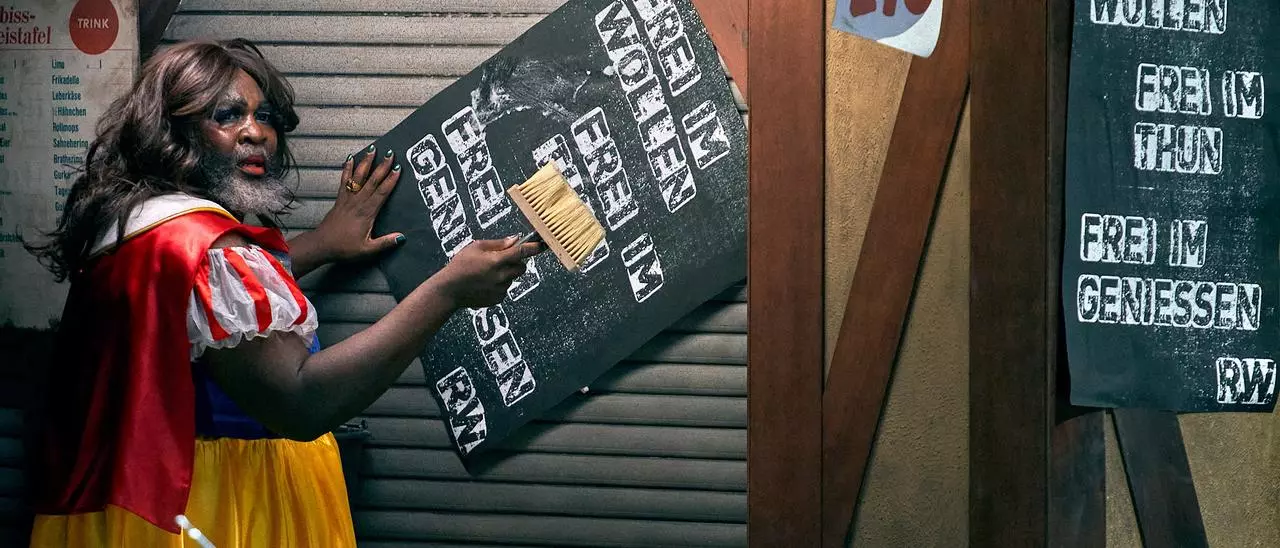 biss-
eistafel
TRINK
Limo
Frikadelle
Leberkäse
½ Hähnchen
Rollmops
Sahnehering
Brathering
FREI IM
WOLLEN
FREI IM
FREI
GENI SSEN
RW
WOLLEN
FREI IM
THUN
FREI IM
GENIESSEN
RW